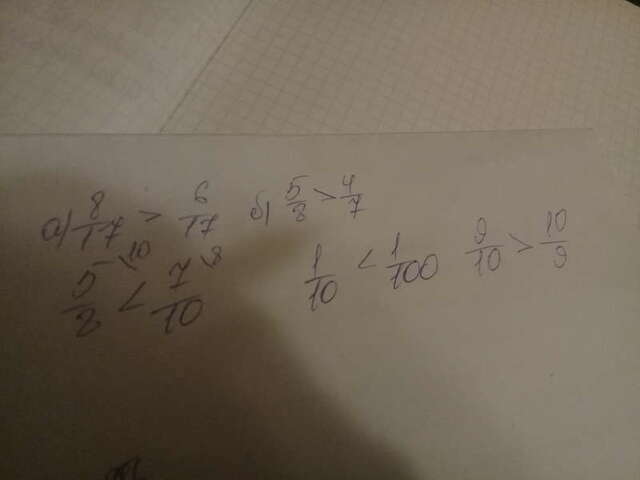 а) 8/17 > 6/17 б) 5/8 > 4/7
5/8 \10 < 7/10 \8 1/10 < 1/100 9/10 > 10/9